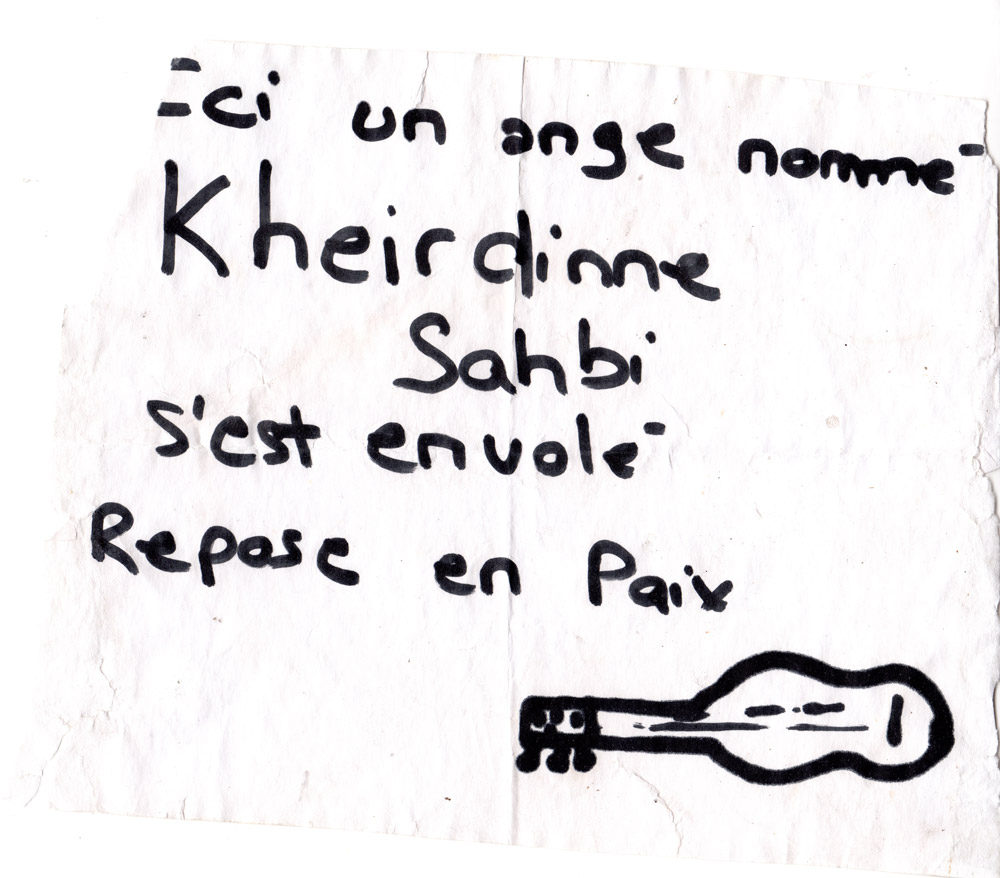 Ici un ange nommé
Kheirdinne
Sahbi
s'est envolé
Repose en Paix